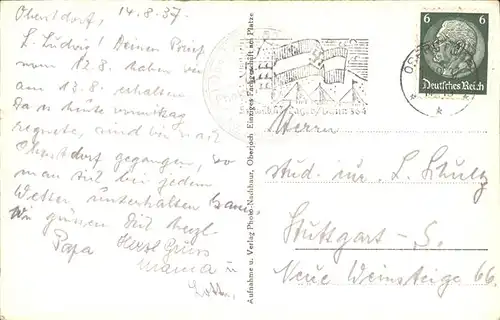 Oberstdorf, 14.8.37.
L. Ludwig! Deinen Brief
vom 12.8. haben wir
am 13.8. erhalten
Da es heute vormittag
regnete, sind wir nach
Oberstdorf gegangen, wo
man sich bei jedem
Wetter unterhalten kann.
Wir grüssen Dich herzl.
Papa Herzl. Gruss
Mama u
Aufnahme u. Verlag Photo-Nachbaur, Oberjoch. Einziges Fachgeschäft am Platze
6 6
Deutsches Reich
Herrn
stud. jur. L. Schultz
Stuttgart-S.
Neue Weinsteige 66.